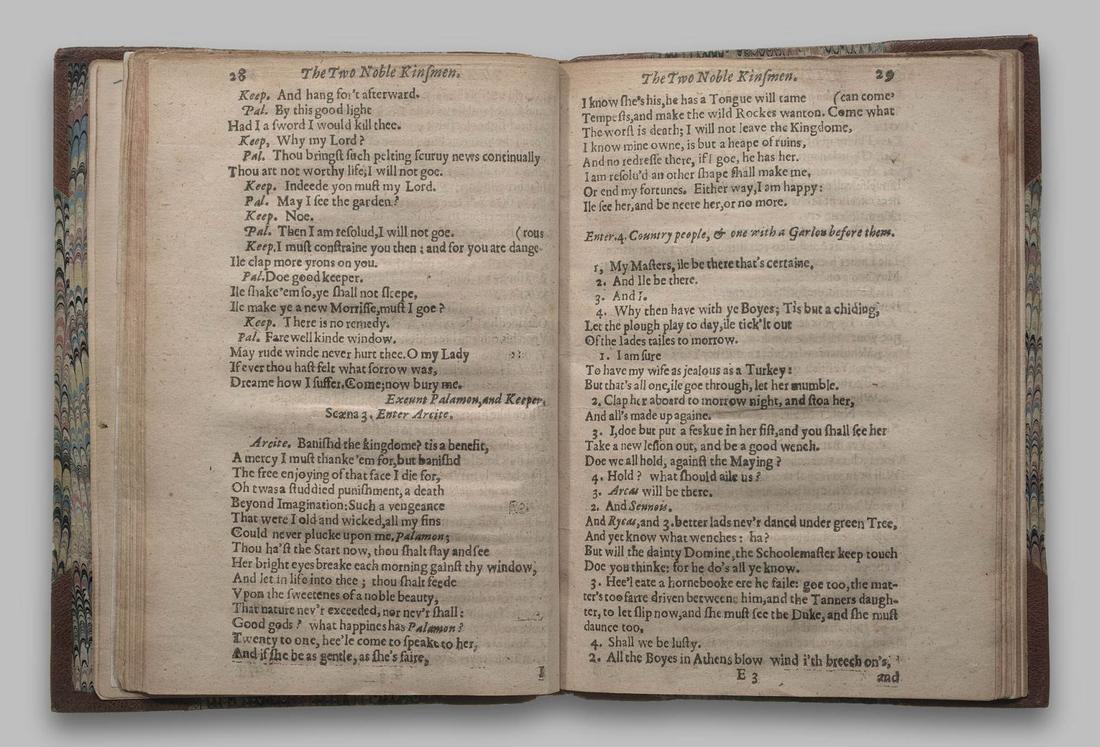 28 The Two Noble Kinſmen.
Keep. And hang for't afterward.
Pal. By this good light
Had I a ſword I would kill thee.
Keep, Why my Lord?
Pal. Thou bringſt ſuch pelting ſcuruy news continually
Thou art not worthy life; I will not goe.
Keep. Indeede yon muſt my Lord.
Pal. May I ſee the garden?
Keep. Noe.
Pal. Then I am reſolud, I will not goe. (rous
Keep. I muſt conſtraine you then; and for you are dange-
Ile clap more yrons on you.
Pal. Doe good keeper.
Ile ſhake 'em ſo, ye ſhall not ſleepe,
Ile make ye a new Morriſſe, muſt I goe?
Keep. There is no remedy.
Pal. Farewell kinde window.
May rude winde never hurt thee. O my Lady
If ever thou haſt felt what ſorrow was,
Dreame how I ſuffer. Come; now bury me.
Exeunt Palamon, and Keeper.
Scæna 3. Enter Arcite.
Arcite. Baniſhd the kingdome? tis a benefit,
A mercy I muſt thanke 'em for, but baniſhd
The free enjoying of that face I die for,
Oh twas a ſtuddied puniſhment, a death
Beyond Imagination: Such a vengeance
That were I old and wicked, all my ſins
Could never plucke upon me. Palamon;
Thou ha'ſt the Start now, thou ſhalt ſtay and ſee
Her bright eyes breake each morning gainſt thy window,
And let in life into thee; thou ſhalt feede
Vpon the ſweetenes of a noble beauty,
That nature nev'r exceeded, nor nev'r ſhall:
Good gods? what happines has Palamon?
Twenty to one, hee'le come to ſpeake to her,
And if ſhe be as gentle, as ſhe's faire,
I
The Two Noble Kinſmen. 29
I know ſhe's his, he has a Tongue will tame (can come
Tempeſts, and make the wild Rockes wanton. Come what
The worſt is death; I will not leave the Kingdome,
I know mine owne, is but a heape of ruins,
And no redreſſe there, if I goe, he has her.
I am reſolu'd an other ſhape ſhall make me,
Or end my fortunes. Either way, I am happy:
Ile ſee her, and be neere her, or no more.
Enter. 4. Country people, & one with a Garlon before them.
1, My Maſters, ile be there that's certaine,
2. And Ile be there.
3. And I.
4. Why then have with ye Boyes; Tis but a chiding,
Let the plough play to day, ile tick'lt out
Of the Iades tailes to morrow.
1. I am ſure
To have my wife as jealous as a Turkey:
But that's all one, ile goe through, let her mumble.
2. Clap her aboard to morrow night, and ſtoa her,
And all's made up againe.
3. I, doe but put a feskue in her fiſt, and you ſhall ſee her
Take a new leſſon out, and be a good wench.
Doe we all hold, againſt the Maying?
4. Hold? what ſhould aile us?
3. Arcas will be there.
2. And Sennois.
And Rycas, and 3. better lads nev'r dancd under green Tree,
And yet know what wenches: ha?
But will the dainty Domine, the Schoolemaſter keep touch
Doe you thinke: for he do's all ye know.
3. Hee'l eate a hornebooke ere he faile: goe too, the mat-
ter's too farre driven betweene him, and the Tanners daugh-
ter, to let ſlip now, and ſhe muſt ſee the Duke, and ſhe muſt
daunce too.
4. Shall we be luſty.
2. All the Boyes in Athens blow wind i'th breech on's,
E 3 and